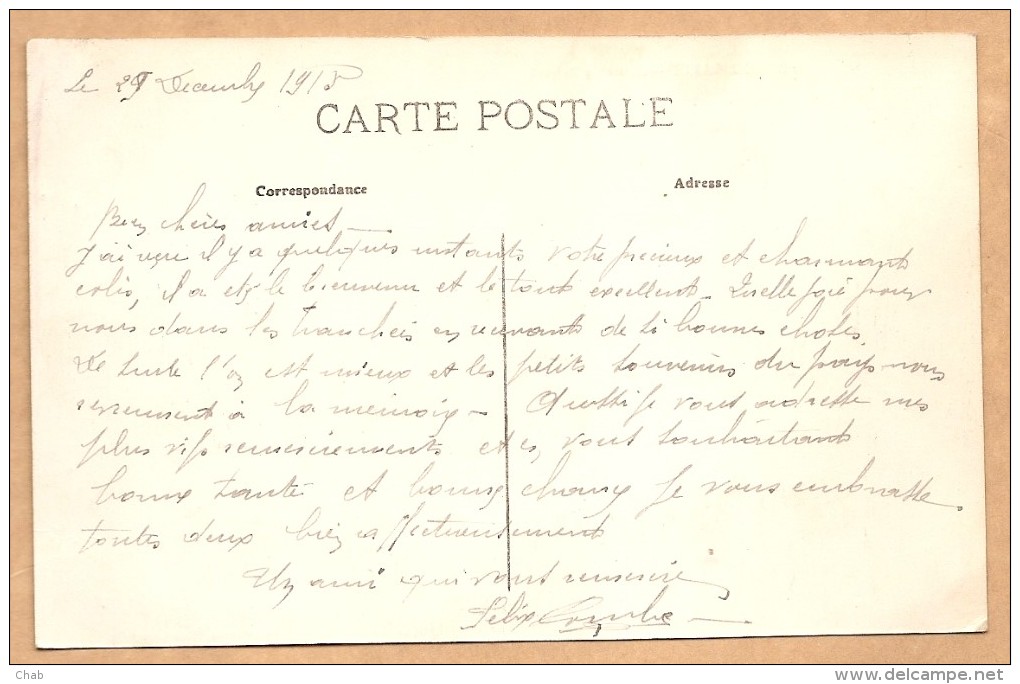 Le 29 Decembre 1915
CARTE POSTALE
Correspondance
Adresse
Bien chères amies
J'ai reçu il y a quelques instants votre précieux et charmants
colis, il a été le bienvenu et le tout excellent. Quelle joie pour
nous dans les tranchées en recevants de si bonnes choses.
De suite l'on est mieux et les petits souvenirs du pays nous
reviennent à la memoire - Aussi je vous adresse mes
plus vifs remerciements et en vous souhaitants
bonne santé et bonne chance je vous embrasse
toutes deux bien affectueusement
Un ami qui vous remercie
Felix Combe
Chab
www.delcampe.net